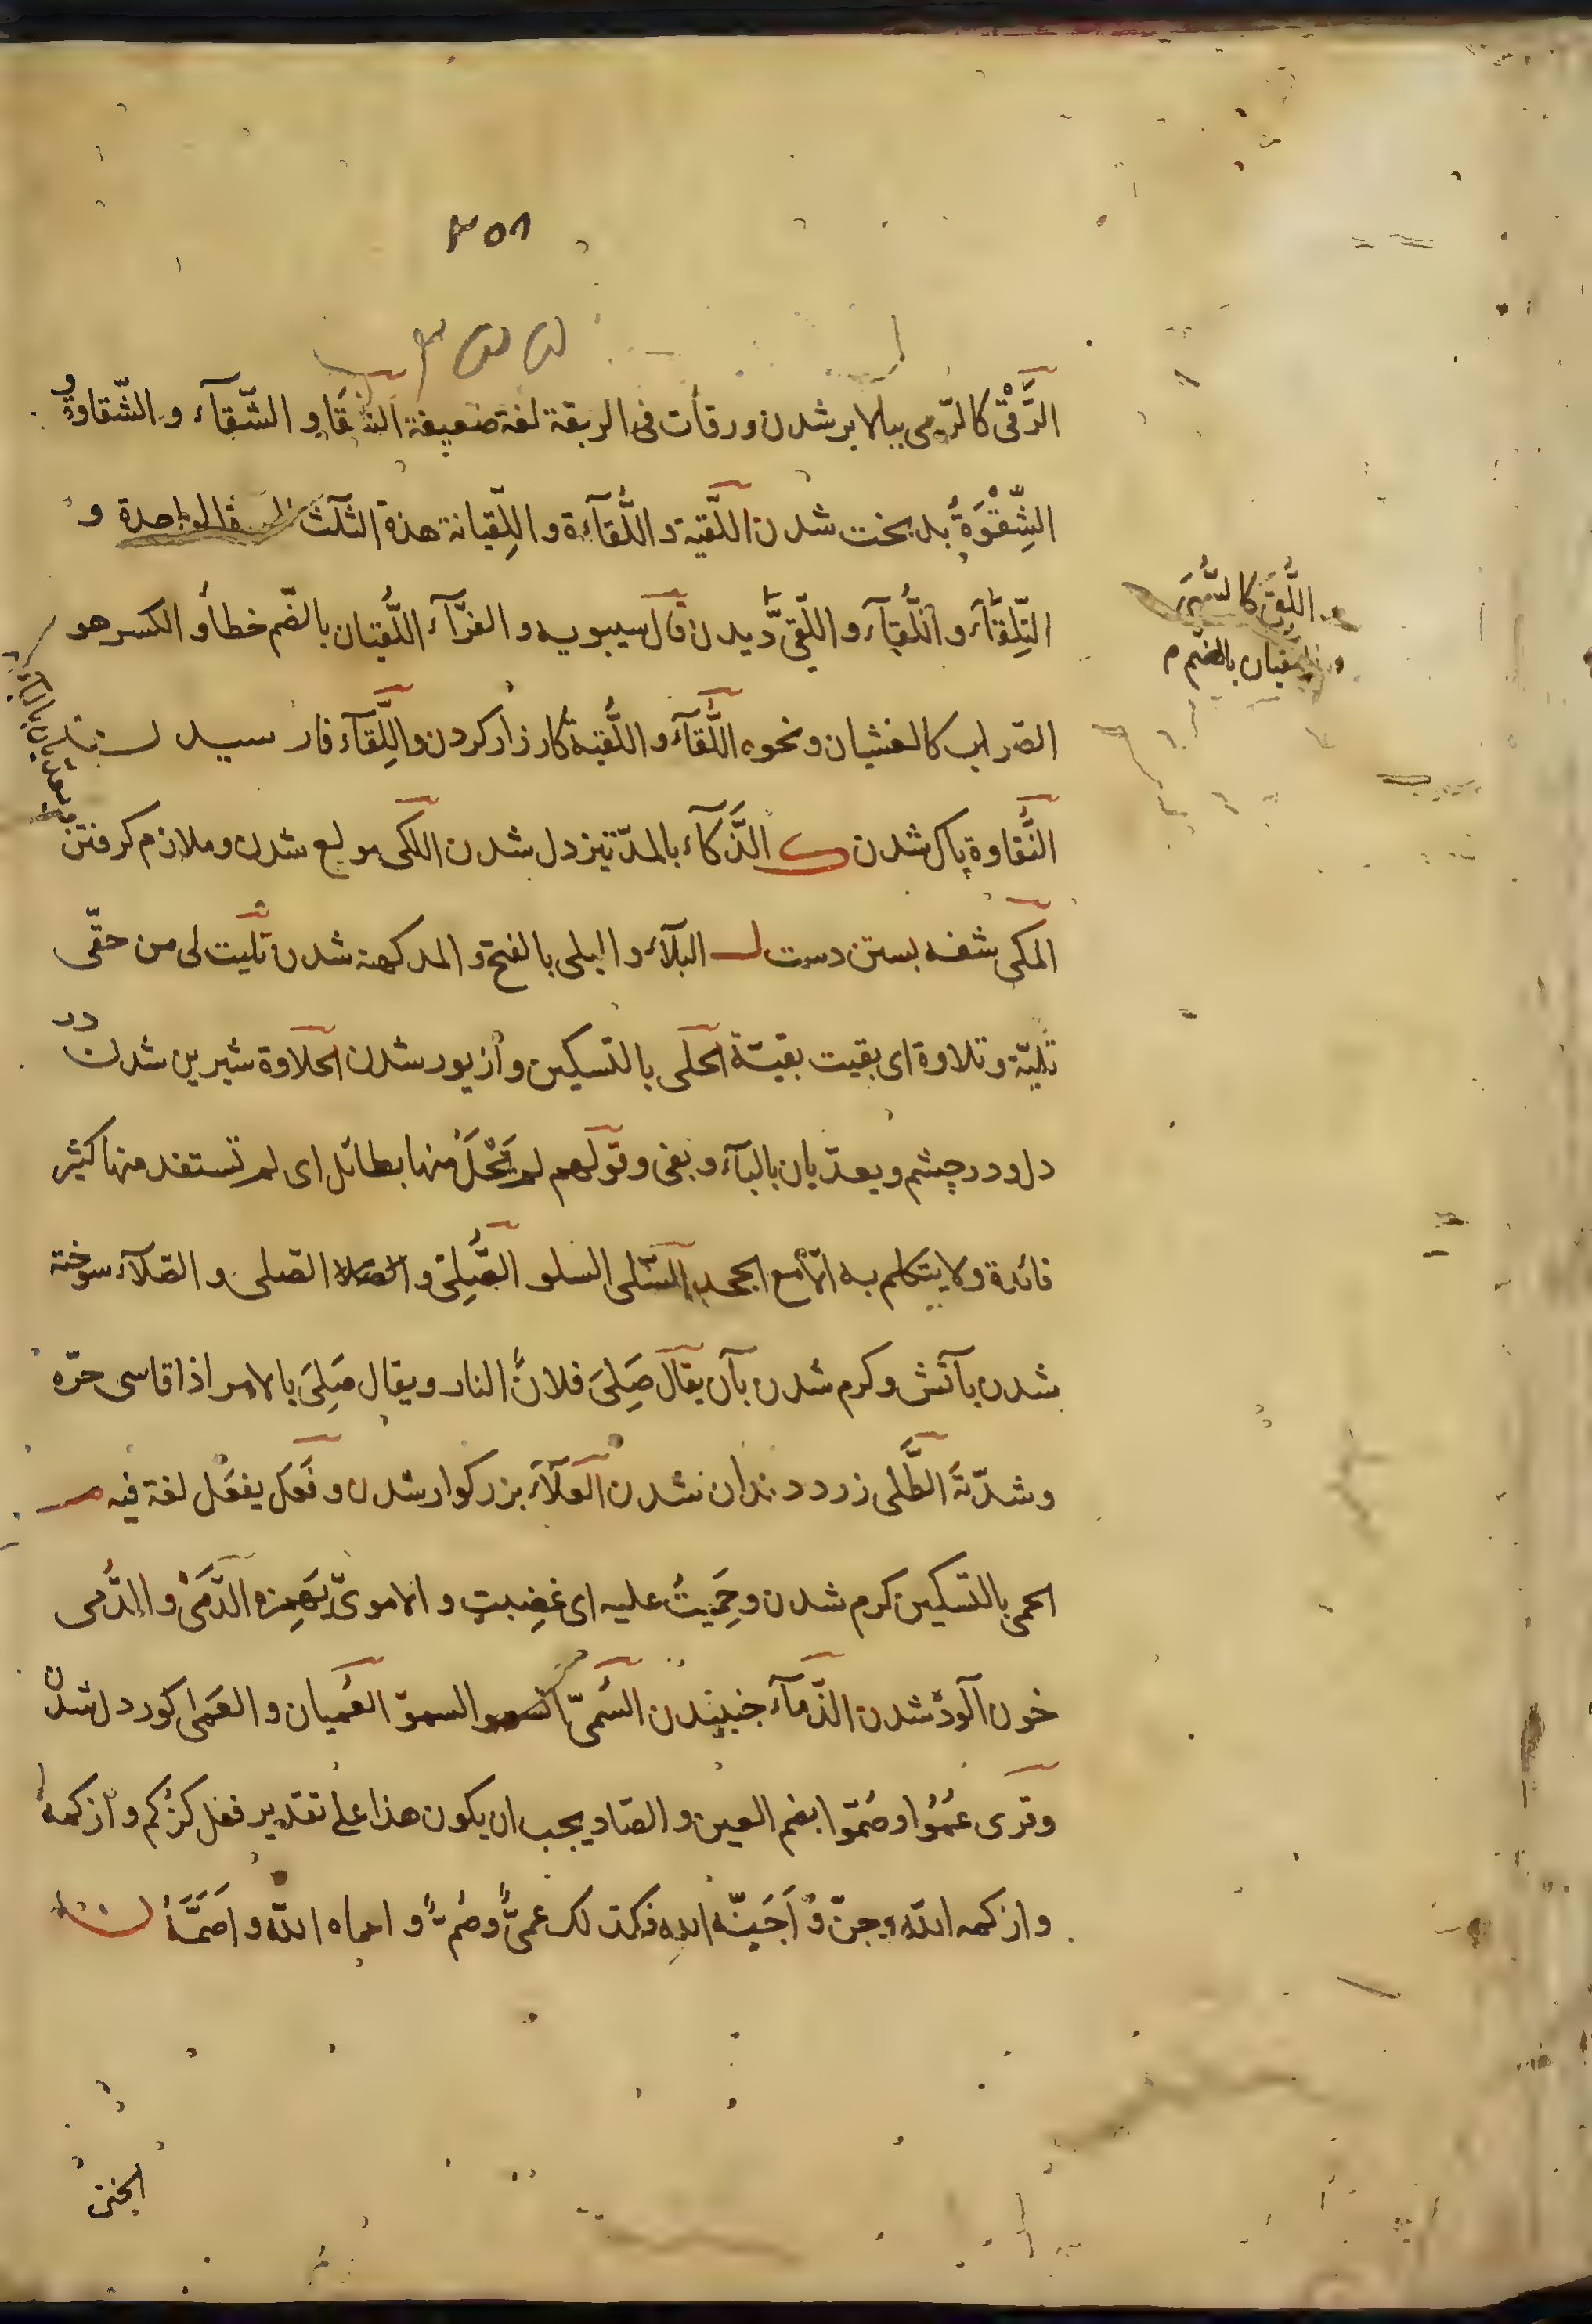 ۳۵۸
الرَّقْىُ كالرّمى ببالا بر شدن ورقأت فى الربقة لغة ضعيفة الشَّقَا و الشّقآء و الشّقاوة و
الشِّقْوَةُ بدبخت شدن اللَّقية و اللُّقآءة و اللِّقيانة هذة الثلث للمرة الواحدة و
التِّلِقّآء و اللُّقآء و اللّقىّ ديدن قال سيبويه و الفرّآء اللُّقيان بالضّم خطأ و الكسر هو
الصّواب كالغشيان ونحوه اللَّقآء و اللُّقية كارزار كردن و اللِّقآء فار سيدن
النَّقاوة پاك شدن ك الذَّكآء بالمدّ تيز دل شدن اللكى مولع شدن وملازم كرفتن
المكى شغه بستن دست ل البلآء و البلى بالفتح و المد كهنه شدن تليت لى من حقّى
تليّة وتلاوة اى بقيت بقيّة الحلى بالتسكين وازيور شدن الحلاوة شيرين شدن در
دل ودر چشم ويعدّيان بالبآء و بفى وقولهم لم يَحْلَ منها بطائل اى لم تستفد منها كثير
فائدة ولا يتكلم به الّا مع الجحد السّلى السلو الصُّلِىّ و الصلا الصّلى و الصّلآء سوخته
شدن بآتش وكرم شدن بآن يقال صَلِىَ فلانٌ النار ويقال صَلِىَ بالامر اذا قاسى حرّه
وشدّتَه الطَّلى زرد دندان شدن العَلآء بزركوار شدن و فَعَل يفعَل لغة فيه م
الحمى بالتسكين كرم شدن وحَمِيتُ عليه اى غضِبت و الاموىّ يَهمِزه الدَّمَى و الدَّمى
خون آلود شدن الذَّمآء جنبيدن السُّمىّ السمو السموّ العَميان و العَمى كور دل شدن
وقرى عُمُوا وصُمّوا بضم العين و الصّاد يجب ان يكون هذا على تقدير فعل كزُكم و ازكمه
وازكمه اللّه وجنّ و اَجَنّه الله فكذلك عمىَّ وصُمَّ و اعماه اللّه و اَصَمَّهُ ن
و اللُّقى كالسُّهى
و اللقيان بالضم م
الخنى